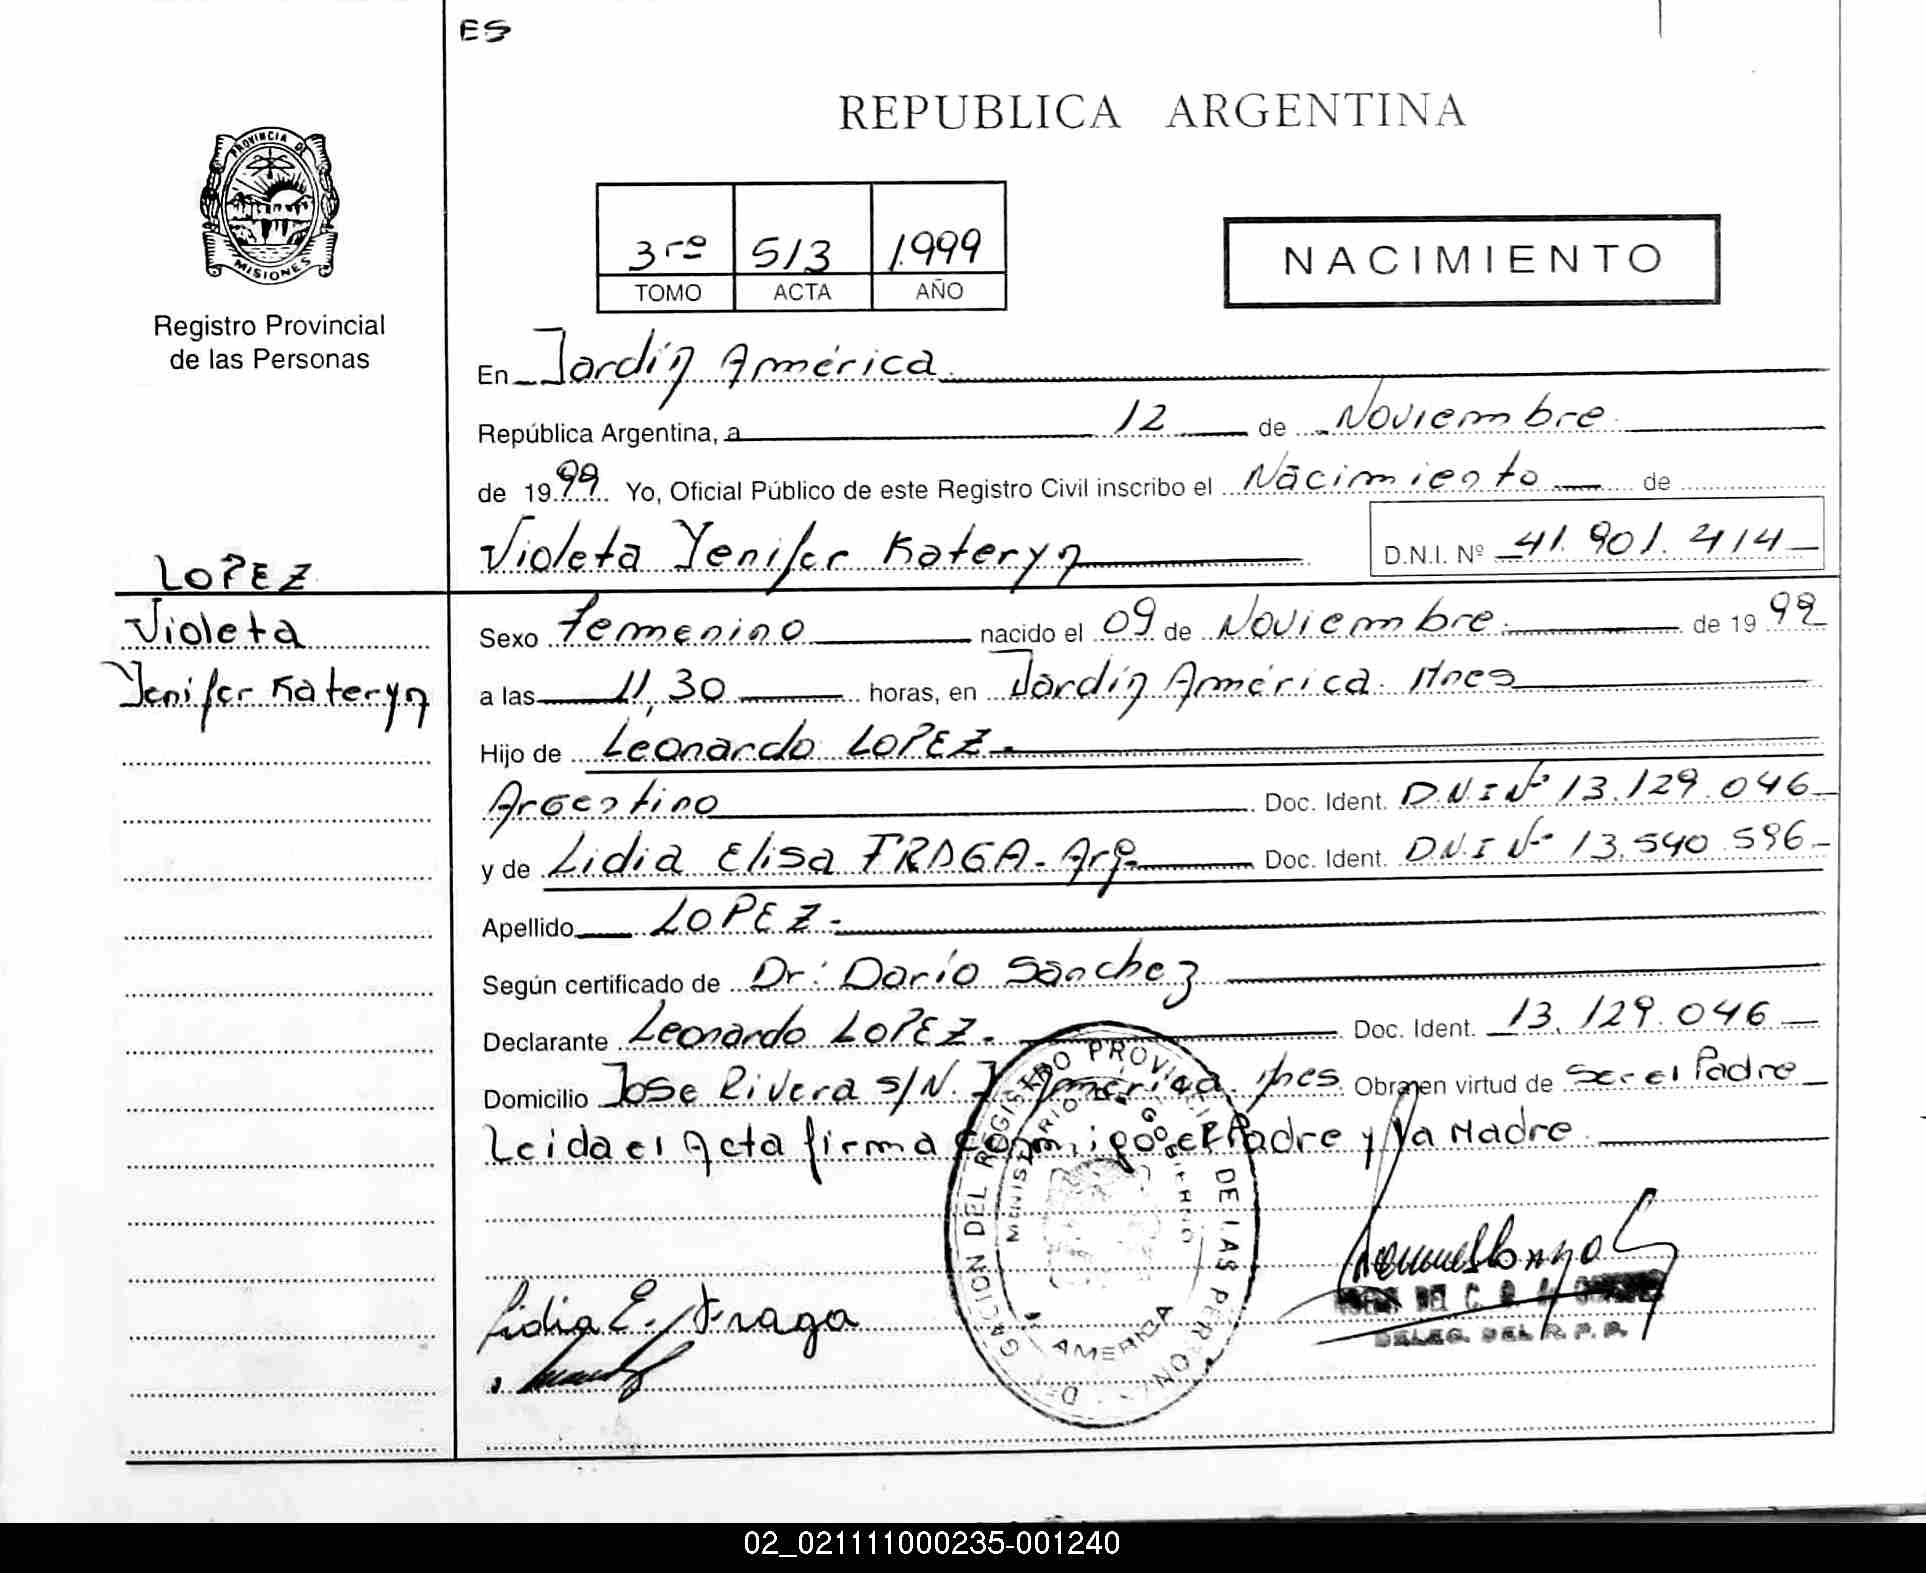 ES
REPUBLICA ARGENTINA
PROVINCIA DE
MISIONES
Registro Provincial
de las Personas
3ro 513 1.999
TOMO ACTA AÑO
NACIMIENTO
En Jardín América.
República Argentina, a 12 de Noviembre.
de 1999. Yo, Oficial Público de este Registro Civil inscribo el Nacimiento de
Violeta Yenifer Kateryn D.N.I. Nº 41.901.414
LOPEZ
Violeta
Yenifer Kateryn
Sexo femenino nacido el 09 de Noviembre. de 1999
a las 11,30 horas, en Jardín América. Mnes
Hijo de Leonardo LOPEZ.
Argentino Doc. Ident. D.N.I Nº 13.129.046
y de Lidia Elisa FRAGA - Arg. Doc. Ident. D.N.I Nº 13.540.596
Apellido LOPEZ.
Según certificado de Dr: Darío Sánchez
Declarante Leonardo LOPEZ. Doc. Ident. 13.129.046
Domicilio José Rivera s/N. J. América. Mnes Obra en virtud de Ser el Padre
Leida el Acta firma conmigo el Padre y la Madre.
DELEGACION DEL REGISTRO PROVINCIAL DE LAS PERSONAS
MINISTERIO DE GOBIERNO
AMERICA
Lidia E. Fraga
DELEG. DEL R. P. P.
02_021111000235-001240